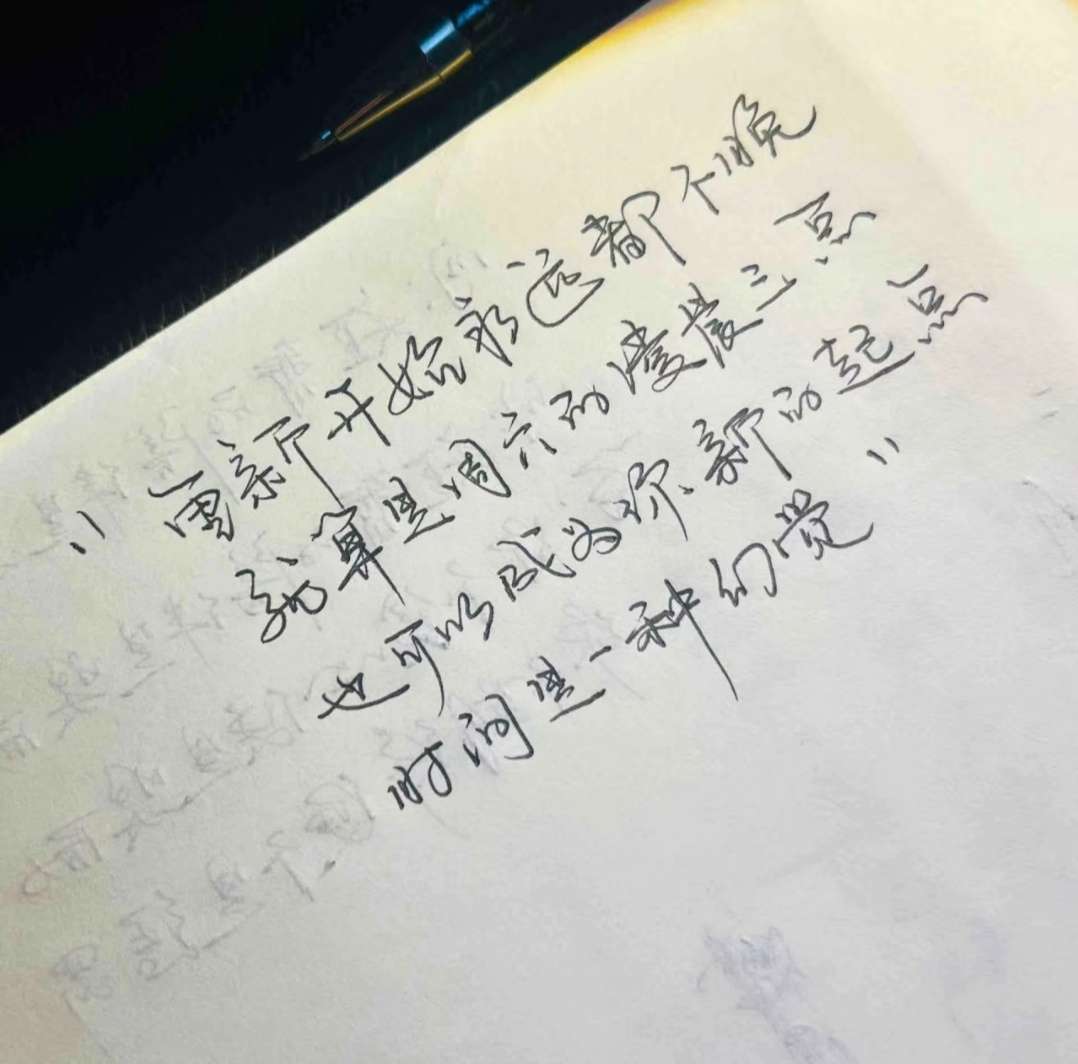 "重新开始永远都不晚
就算是周六的凌晨三点
也可以成为你新的起点
时间是一种幻觉"